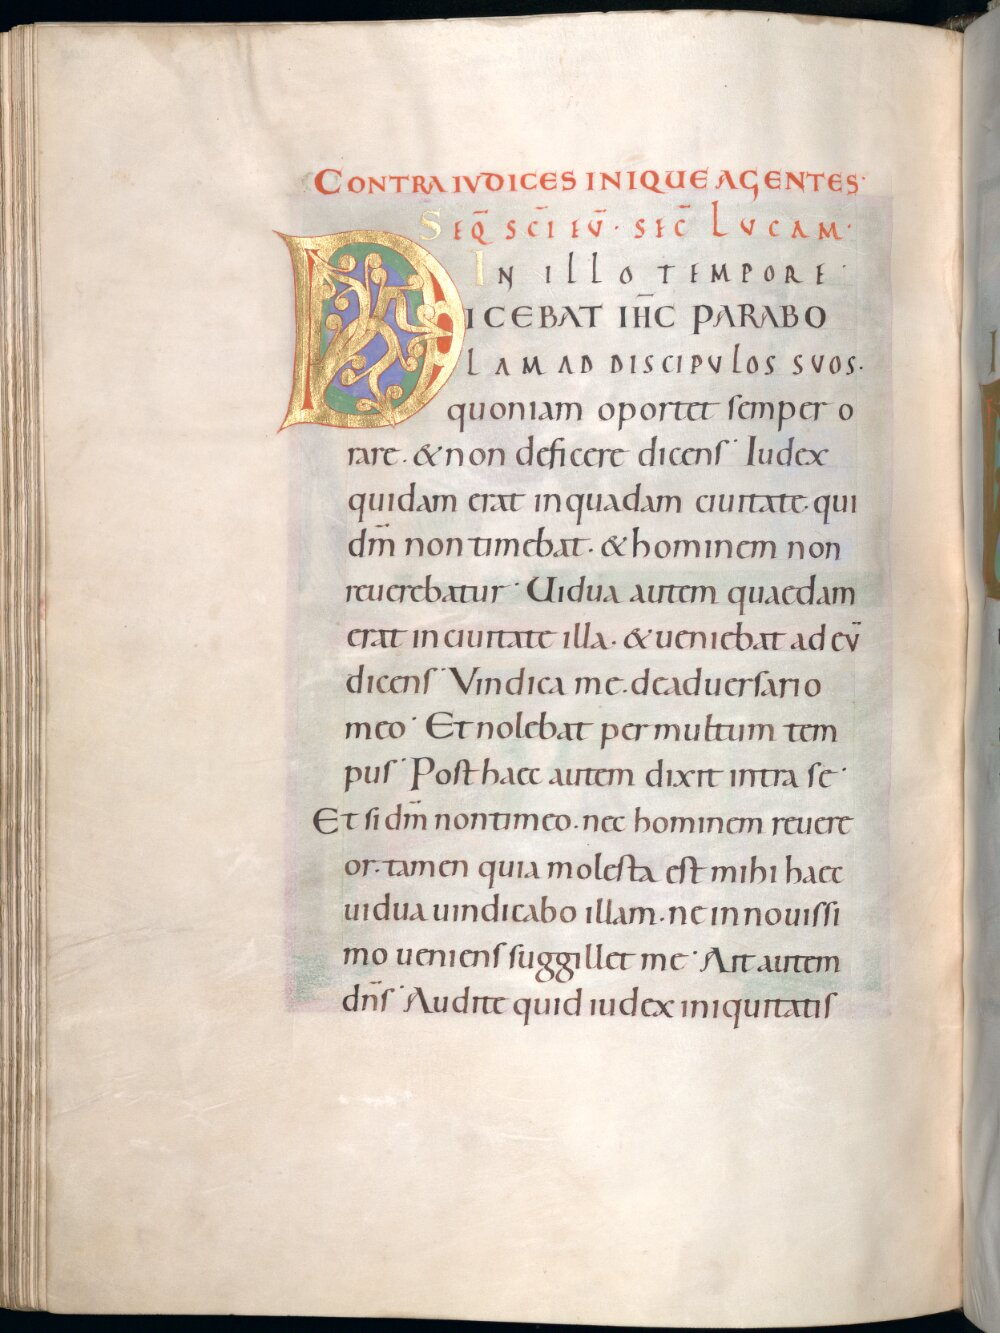 CONTRA IVDICES INIQUE AGENTES·
SEQ̄ SC̄I EV̄· SEC̄ LVCAM·
IN ILLO TEMPORE·
DICEBAT IH̄C PARABO
LAM AD DISCIPVLOS SVOS·
quoniam oportet semper o
rare· & non deficere dicens· Iudex
quidam erat in quadam ciuitate· qui
dm̄ non timebat· & hominem non
reuerebatur· Uidua autem quaedam
erat in ciuitate illa· & ueniebat ad ev̄
dicens· Vindica me· de aduersario
meo· Et nolebat per multum tem
pus· Post haec autem dixit intra se·
Et si dm̄ non timeo· nec hominem reuere
or· tamen quia molesta est mihi haec
uidua uindicabo illam· ne in nouissi
mo ueniens suggillet me· Ait autem
dn̄s· Audite quid iudex iniquitatis